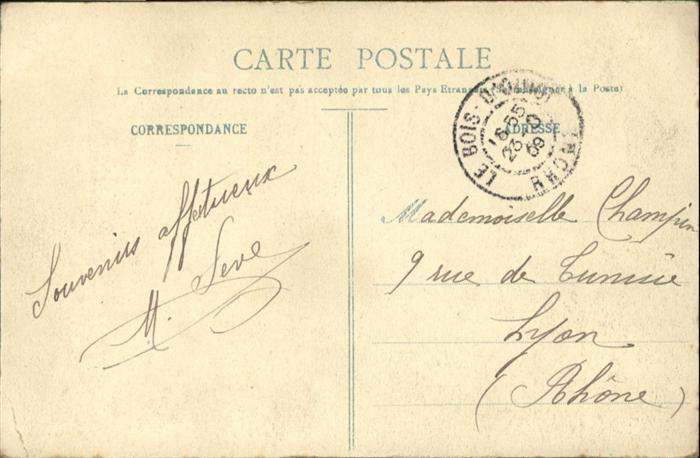 CARTE POSTALE
La Correspondance au recto n'est pas acceptée par tous les Pays Etrangers (Se renseigner à la Poste)
CORRESPONDANCE
ADRESSE
LE BOIS-D'OINGT
16 55
23
09
RHONE
Souvenirs affectueux
M. Seve
Mademoiselle Champin
9 rue de Tunisie
Lyon
(Rhône)